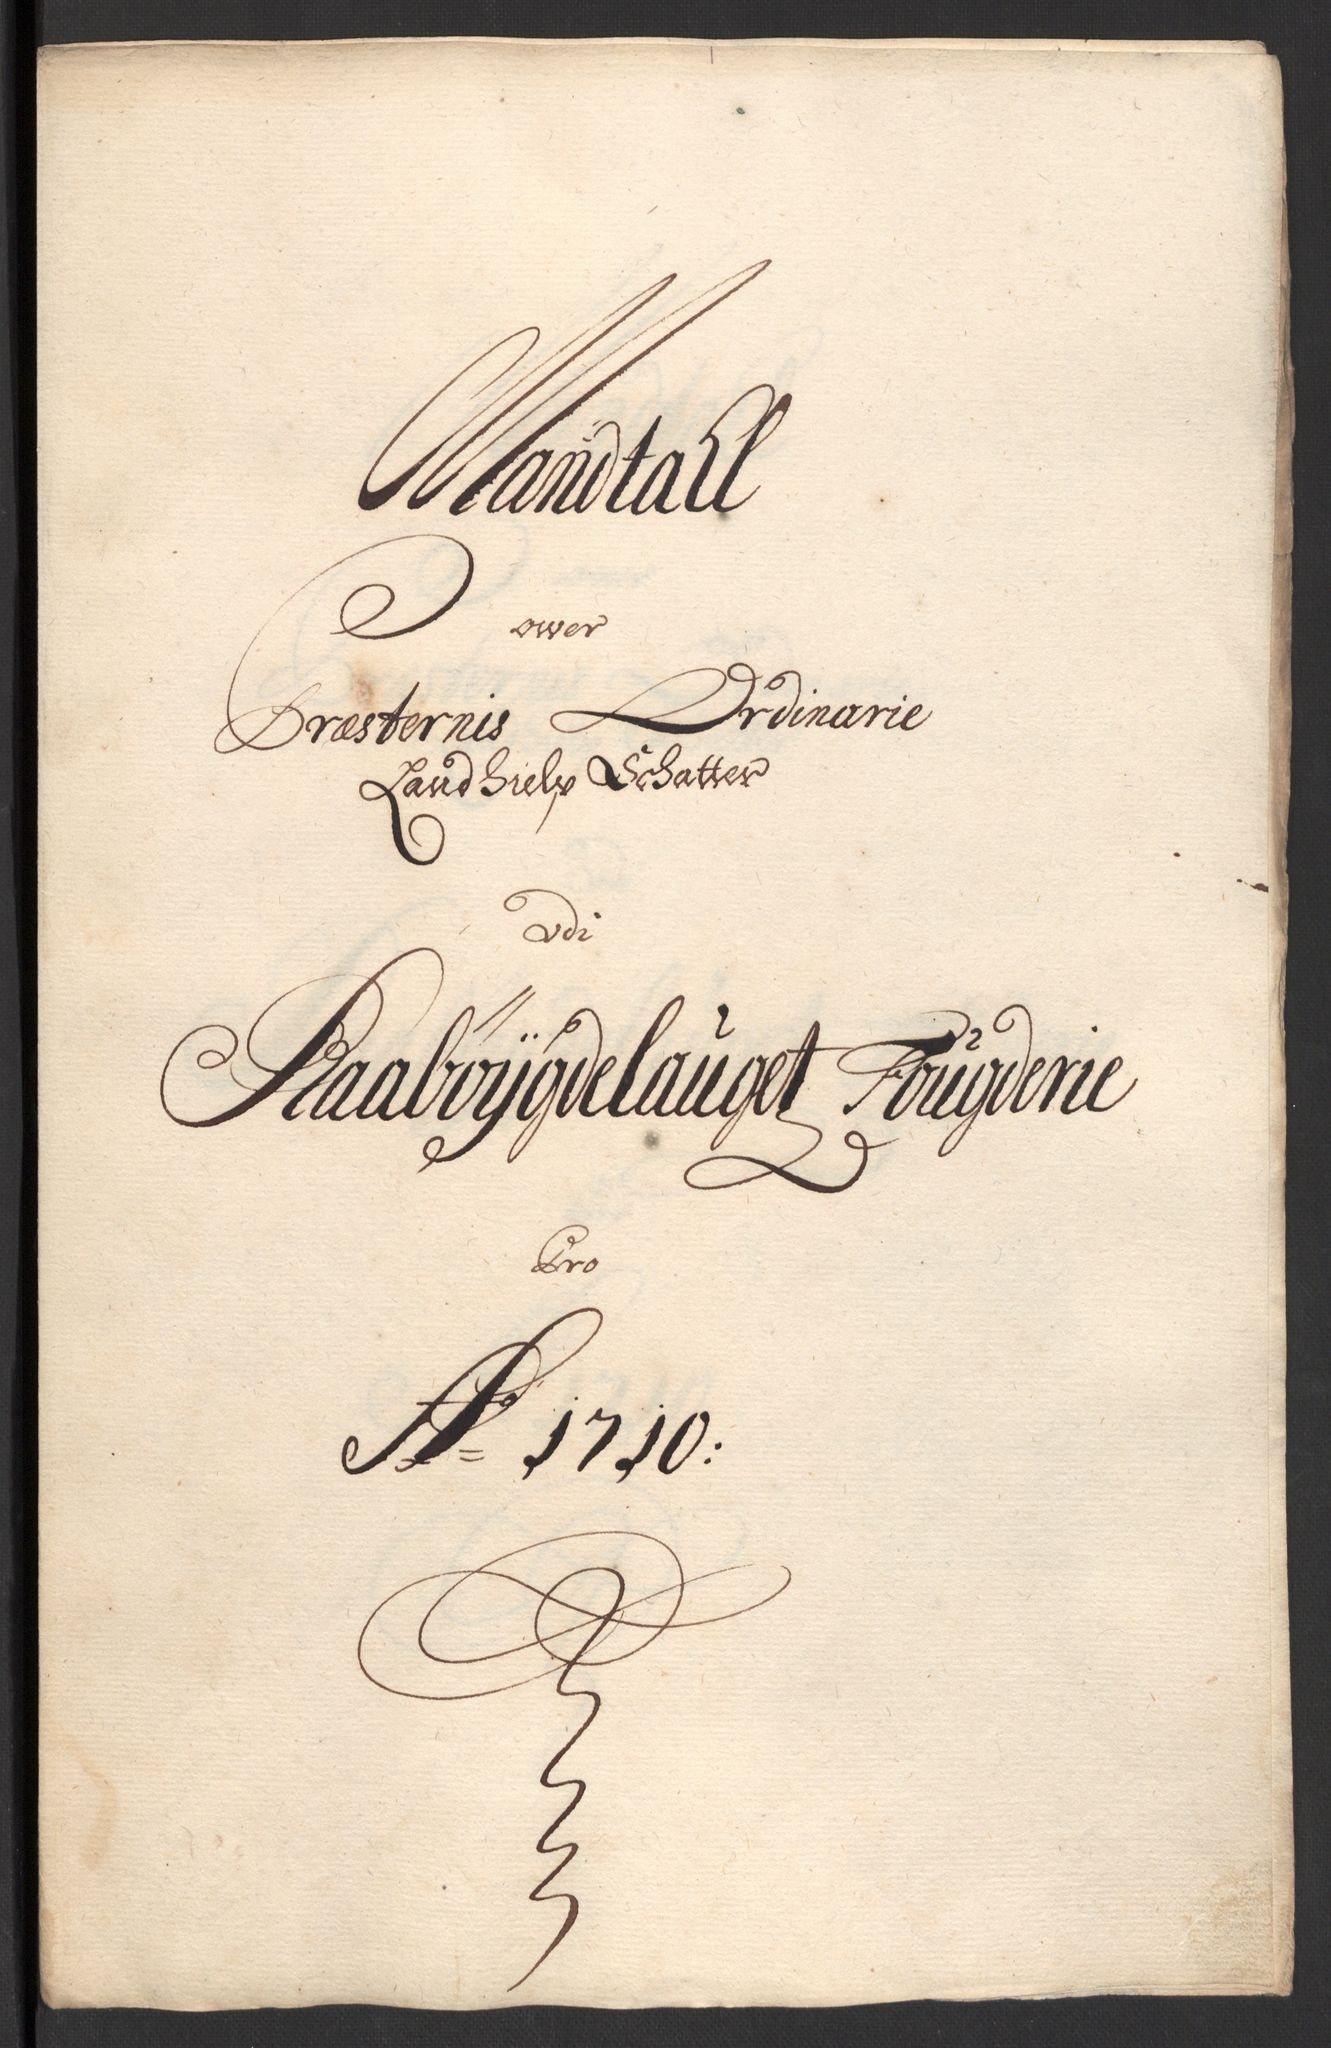 Mandtall
ower
Præsternis Ordinarie
Landhielp Schatter
vdi
Raabÿgdelauget Fougderie
Pro
Ao= 1710: